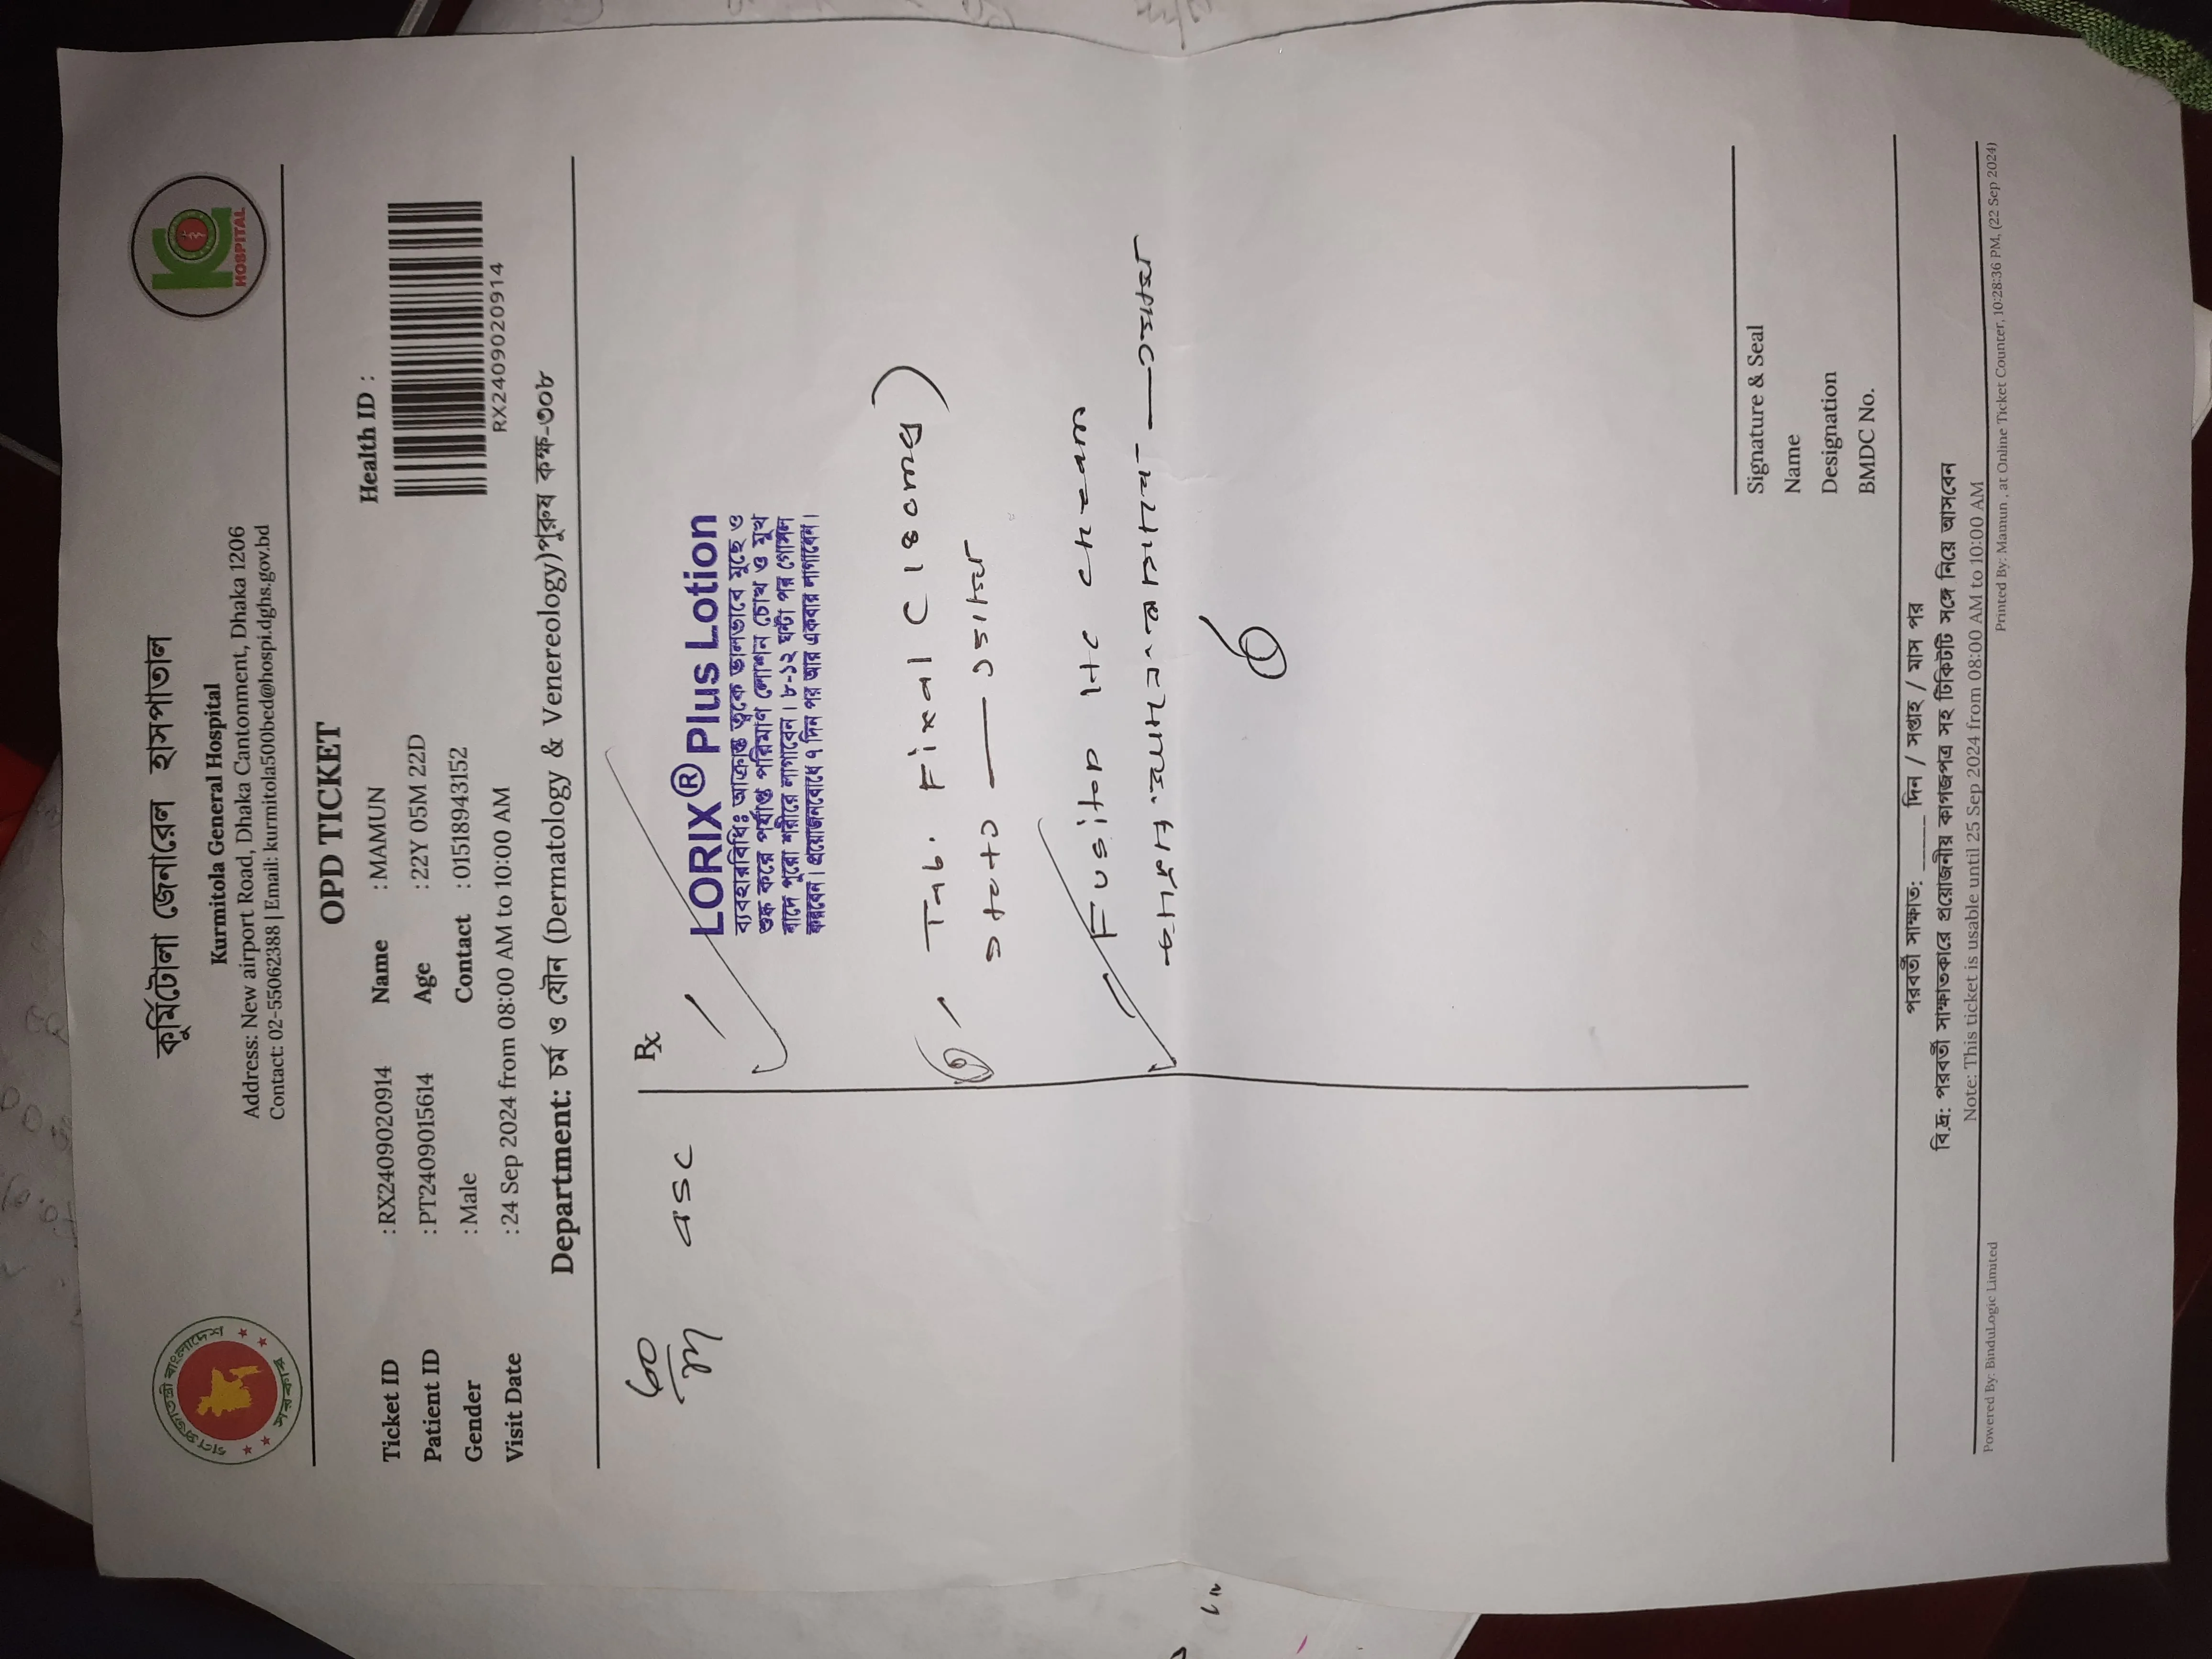 কুর্মিটোলা জেনারেল হাসপাতাল
Kurmitola General Hospital
Address: New airport Road, Dhaka Cantonment, Dhaka 1206
Contact: 02-55062388 | Email: kurmitola500bed@hospi.dghs.gov.bd
গণপ্রজাতন্ত্রী বাংলাদেশ
সরকার
HOSPITAL
OPD TICKET
Ticket ID : RX2409020914 Name : MAMUN Health ID :
Patient ID : PT2409015614 Age : 22Y 05M 22D
Gender : Male Contact : 01518943152
Visit Date : 24 Sep 2024 from 08:00 AM to 10:00 AM
RX2409020914
Department: চর্ম ও যৌন (Dermatology & Venereology)পুরুষ কক্ষ-৩০৮
Rx
LORIX® Plus Lotion
ব্যবহারবিধিঃ আক্রান্ত ত্বকে ভালভাবে মুছে ও
শুষ্ক করে পর্যাপ্ত পরিমাণ লোশন চোখ ও মুখ
বাদে পুরো শরীরে লাগাবেন। ৮-১২ ঘন্টা পর গোসল
করবেন। প্রয়োজনবোধে ৭ দিন পর আর একবার লাগাবেন।
Tab. Fixal (180mg)
০+০+১
Fusitop HC cream
Signature & Seal
Name
Designation
BMDC No.
পরবর্তী সাক্ষাত: _____ দিন / সপ্তাহ / মাস পর
বি.দ্র: পরবর্তী সাক্ষাতকারে প্রয়োজনীয় কাগজপত্র সহ টিকিটটি সঙ্গে নিয়ে আসবেন
Note: This ticket is usable until 25 Sep 2024 from 08:00 AM to 10:00 AM
Powered By: BinduLogic Limited Printed By: Mamun , at Online Ticket Counter, 10:28:36 PM, (22 Sep 2024)